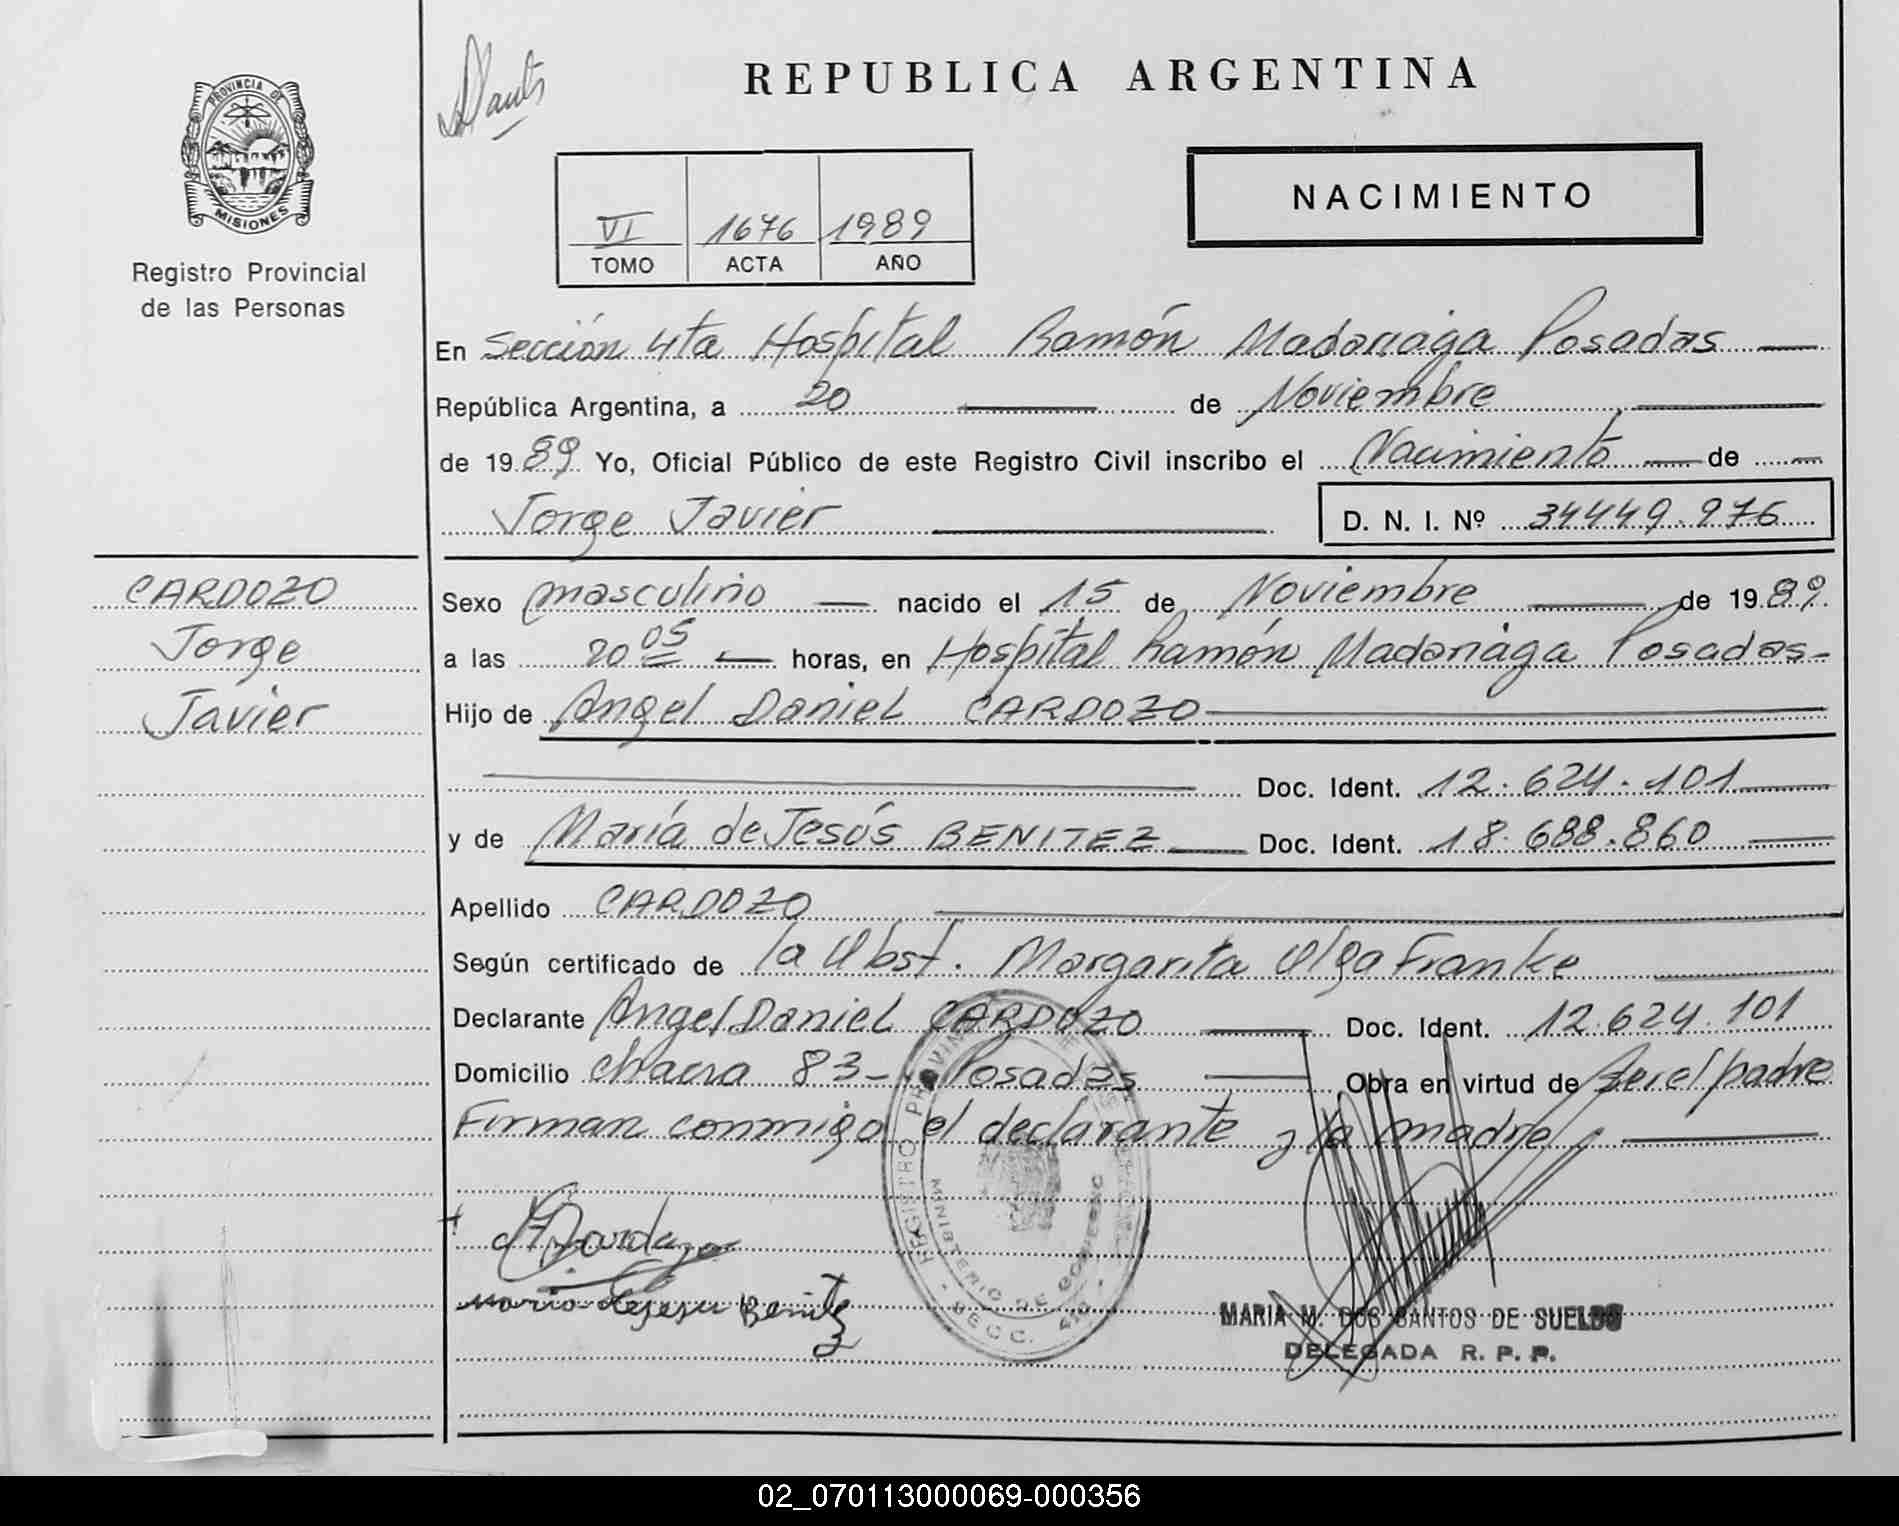 REPUBLICA ARGENTINA
PROVINCIA DE
MISIONES
Registro Provincial
de las Personas
NACIMIENTO
VI 1676 1989
TOMO ACTA AÑO
En Sección 4ta Hospital Ramón Madariaga Posadas
República Argentina, a 20 de Noviembre
de 1989 Yo, Oficial Público de este Registro Civil inscribo el Nacimiento de
Jorge Javier
D. N. I. Nº 34449.976
CARDOZO
Jorge
Javier
Sexo masculino nacido el 15 de Noviembre de 1989.
a las 20 05 horas, en Hospital Ramón Madariaga Posadas-
Hijo de Angel Daniel CARDOZO
Doc. Ident. 12.624.101
y de María de Jesús BENITEZ Doc. Ident. 18.688.860
Apellido CARDOZO
Según certificado de la Obst. Margarita Olga Franke
Declarante Angel Daniel CARDOZO Doc. Ident. 12.624.101
Domicilio Chacra 83- Posadas Obra en virtud de Ser el padre
Firman conmigo el declarante y la madre
REGISTRO PROVINCIAL DE LAS PERSONAS
MINISTERIO DE GOBIERNO
SECC. 4ta
Benitez
MARIA M. DOS SANTOS DE SUELDO
DELEGADA R. P. P.
02_070113000069-000356